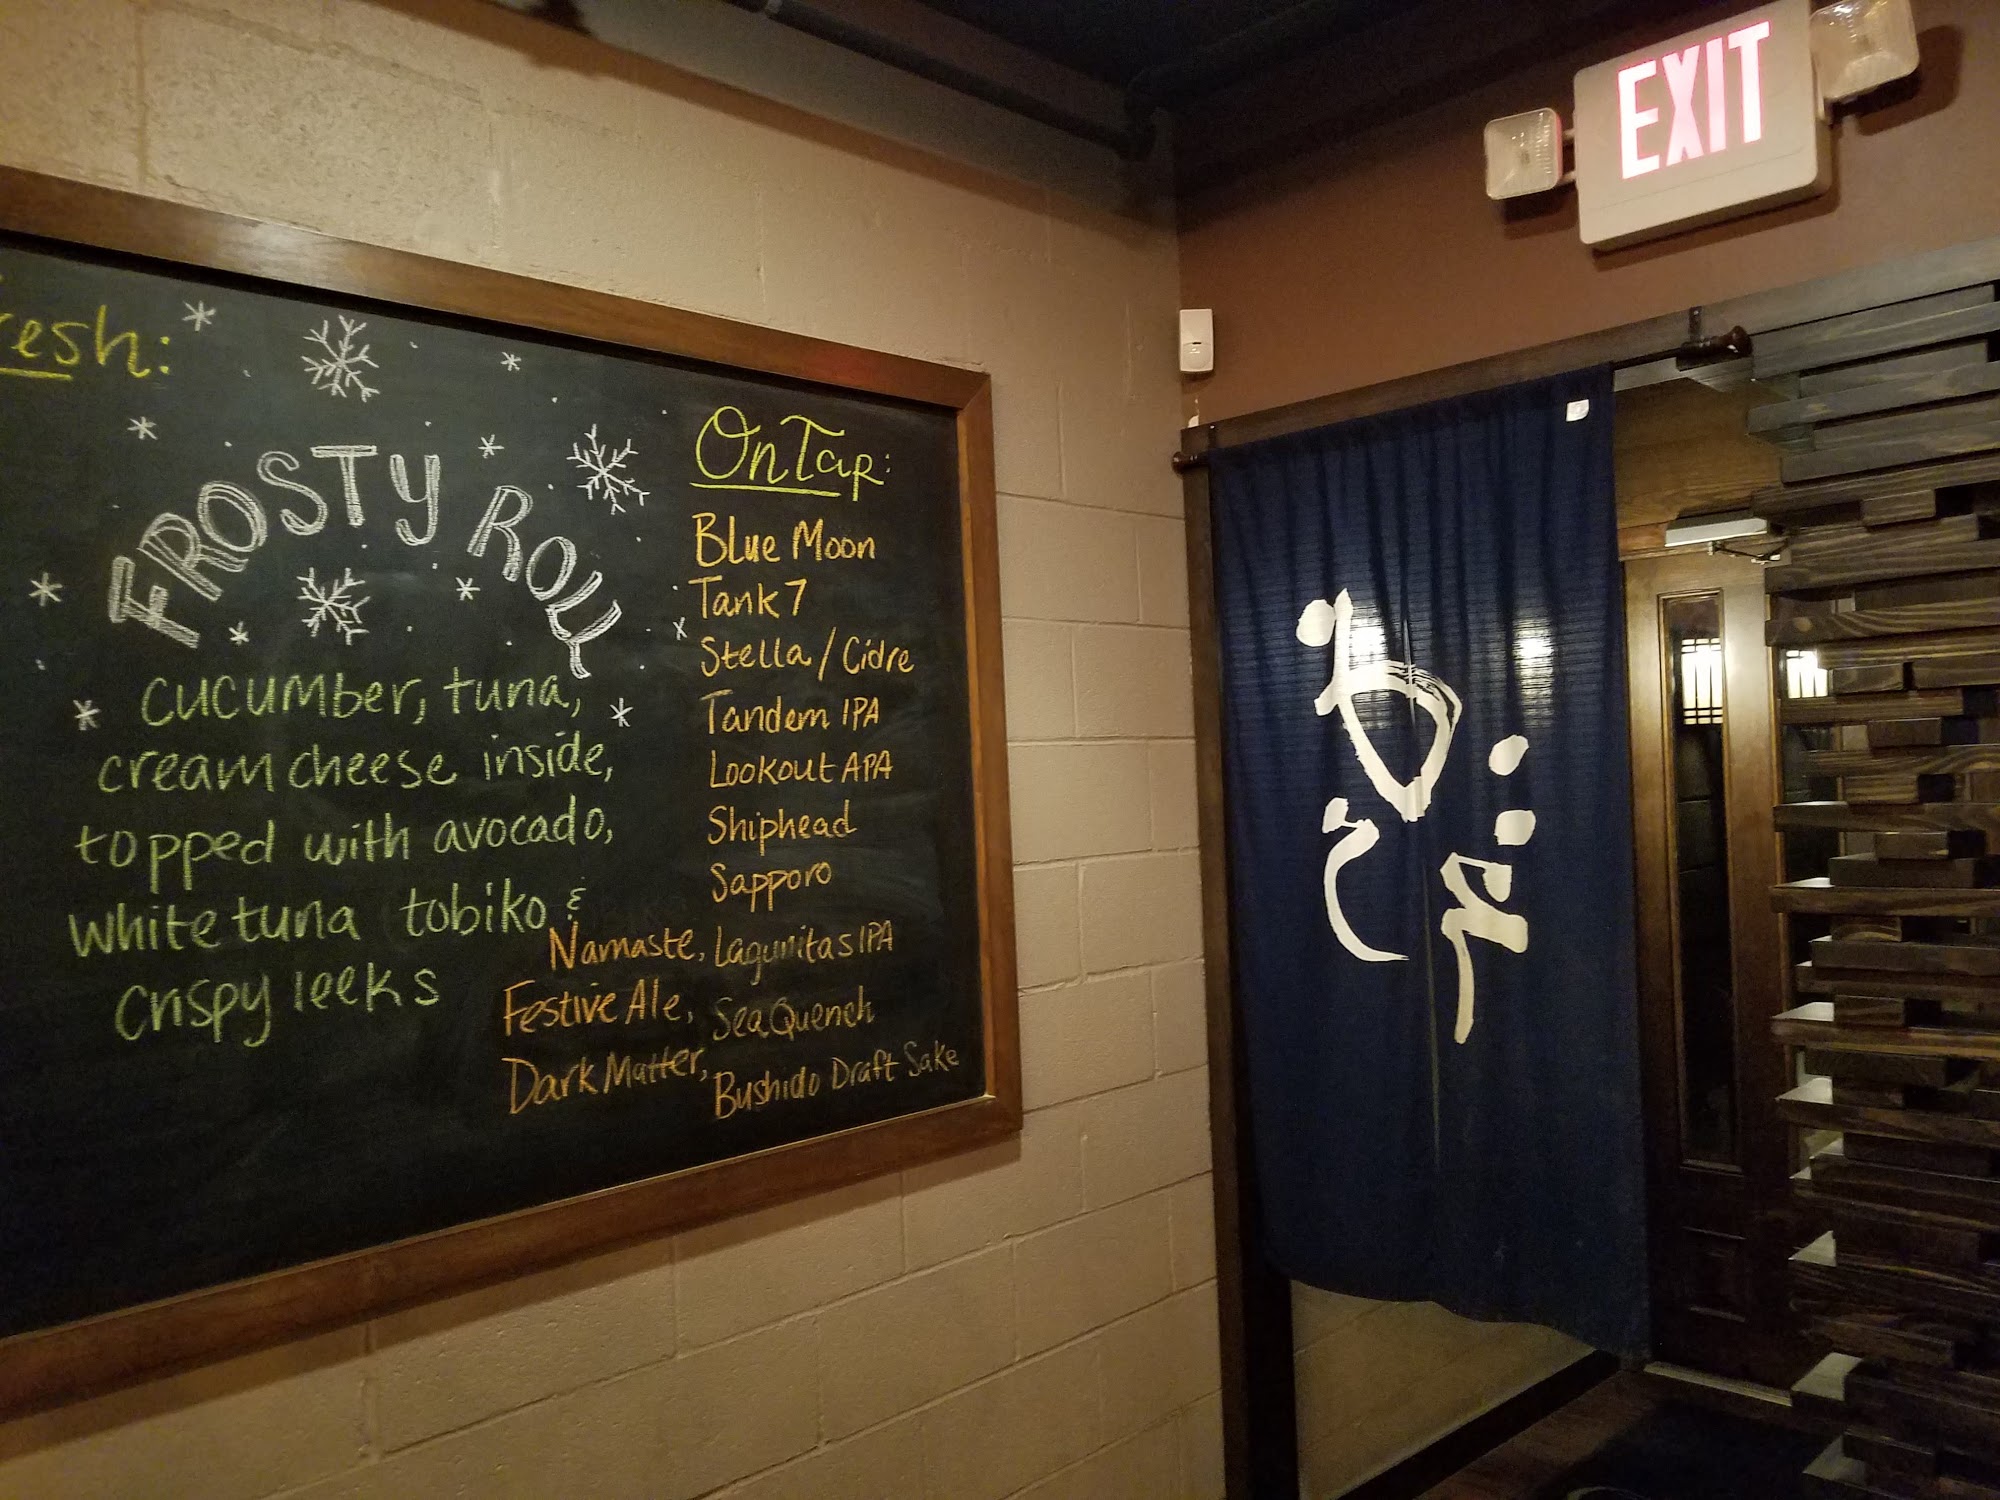 resh:
FROSTY ROLL
cucumber, tuna,
cream cheese inside,
topped with avocado,
white tuna tobiko &
crispy leeks
On Tap:
Blue Moon
Tank 7
Stella / Cidre
Tandem IPA
Lookout APA
Shiphead
Sapporo
Namaste, Lagunitas IPA
Festive Ale, SeaQuench
Dark Matter, Bushido Draft Sake
EXIT